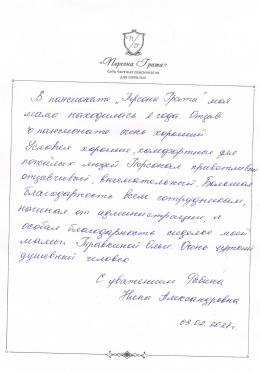 «Персона Грата»
сеть частных пансионатов
для пожилых
В пансионате „Персона Грата" моя
мама находилась 2 года. Отзыв
о пансионате очень хороший.
Условия хорошие, комфортные для
пожилых людей. Персонал приветливый,
отзывчивый, внимательный. Большая
благодарность всем сотрудникам,
начиная от администрации, и
особая благодарность сиделке моей
мамы. Травкиной Ольге. Очень чуткий
душевный человек
С уважением Рябина
Нина Александровна
09.02.2021г.